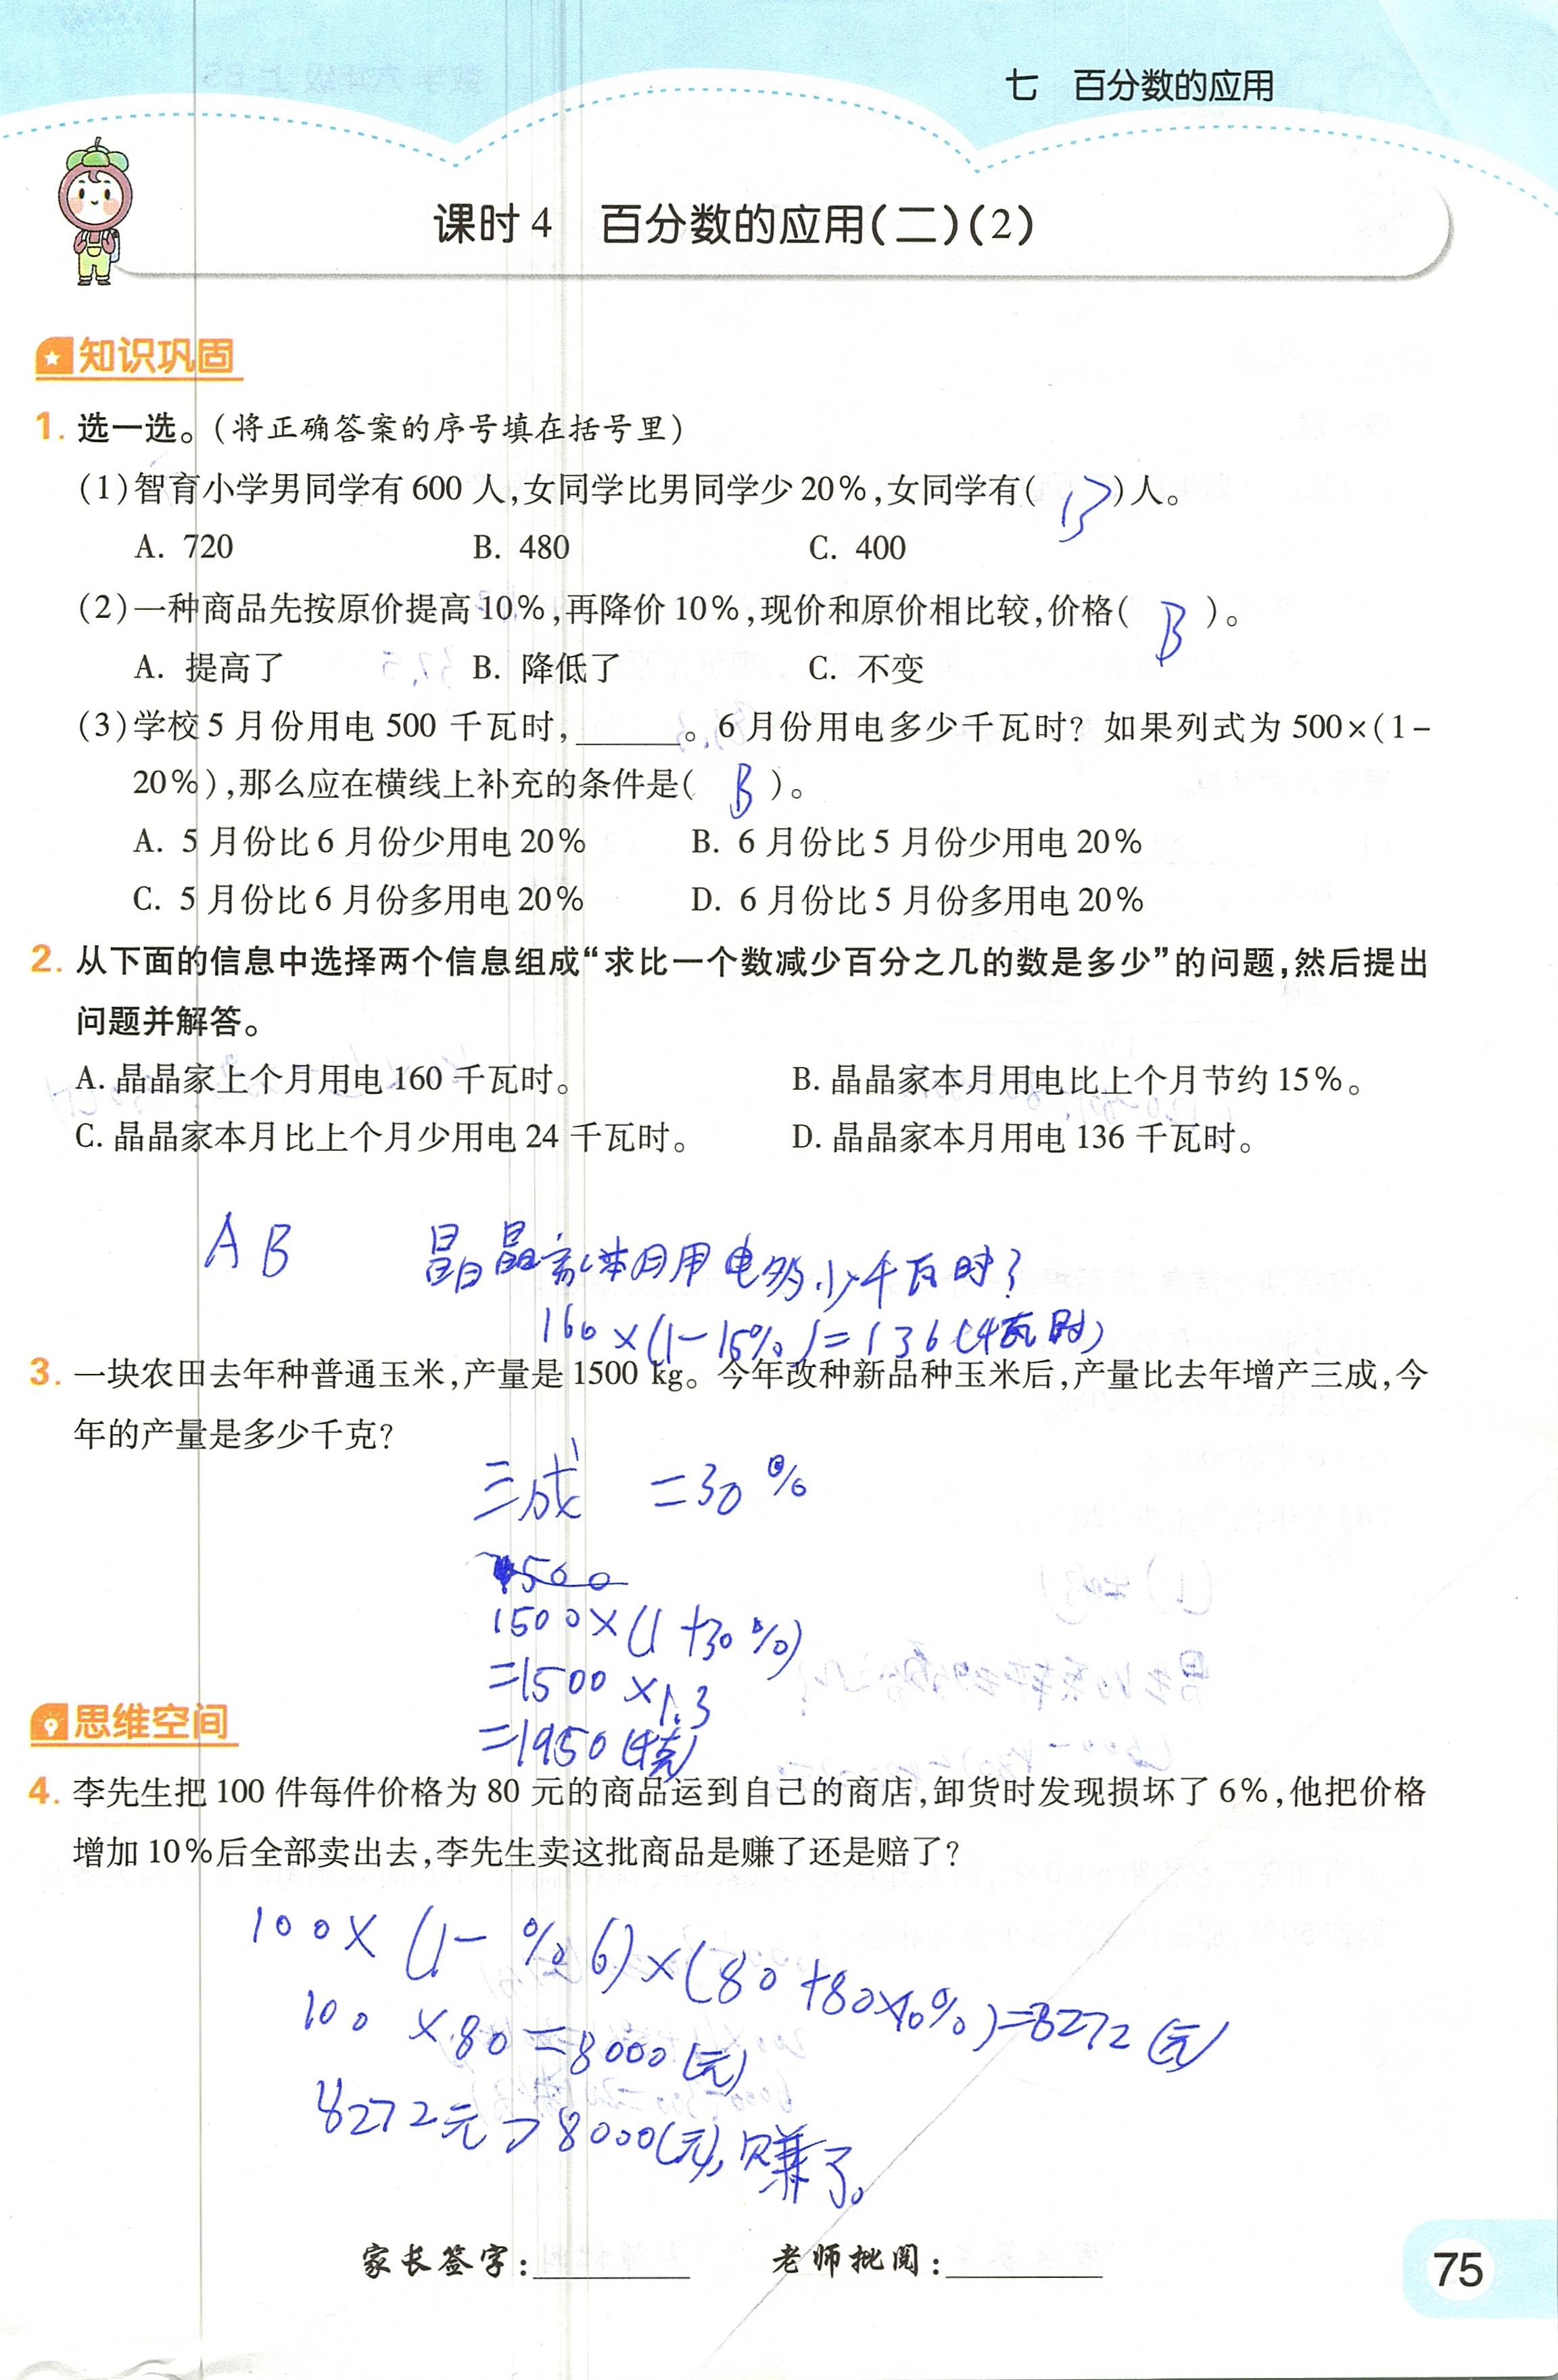 七 百分数的应用
课时4 百分数的应用(二)(2)
知识巩固
1. 选一选。(将正确答案的序号填在括号里)
(1)智育小学男同学有600人,女同学比男同学少20%,女同学有( B )人。
A. 720 B. 480 C. 400
(2)一种商品先按原价提高10%,再降价10%,现价和原价相比较,价格( B )。
A. 提高了 B. 降低了 C. 不变
(3)学校5月份用电500千瓦时,______。6月份用电多少千瓦时?如果列式为500×(1-
20%),那么应在横线上补充的条件是( B )。
A. 5月份比6月份少用电20% B. 6月份比5月份少用电20%
C. 5月份比6月份多用电20% D. 6月份比5月份多用电20%
2. 从下面的信息中选择两个信息组成“求比一个数减少百分之几的数是多少”的问题,然后提出
问题并解答。
A. 晶晶家上个月用电160千瓦时。 B. 晶晶家本月用电比上个月节约15%。
C. 晶晶家本月比上个月少用电24千瓦时。 D. 晶晶家本月用电136千瓦时。
AB 晶晶家本月用电多少千瓦时?
160×(1-15%)=136(千瓦时)
3. 一块农田去年种普通玉米,产量是1500 kg。今年改种新品种玉米后,产量比去年增产三成,今
年的产量是多少千克?
三成 =30%
1500
1500×(1+30%)
=1500×1.3
=1950(千克)
思维空间
4. 李先生把100件每件价格为80元的商品运到自己的商店,卸货时发现损坏了6%,他把价格
增加10%后全部卖出去,李先生卖这批商品是赚了还是赔了?
100×(1-%6)×(80+80×10%)=8272(元)
100×80=8000(元)
8272元>8000(元),赚了。
家长签字:______ 老师批阅:______
75